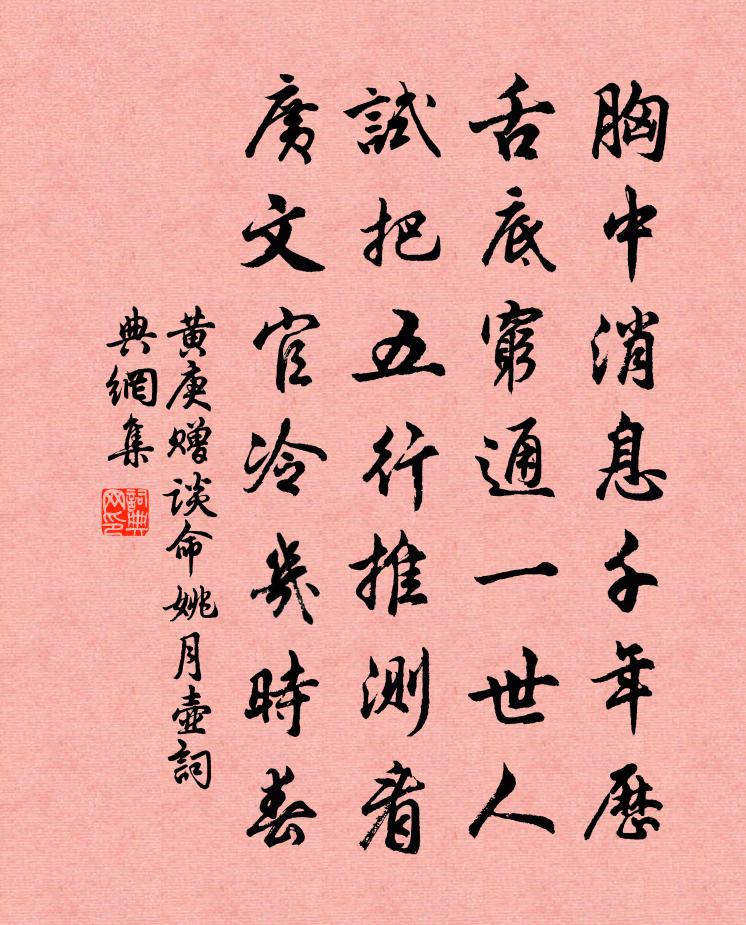 胸中消息千年歷
舌底窮通一世人
試把五行推測看
廣文官冷幾時春
黄庚赠谈命姚月壺詞
典網集
詞典網印